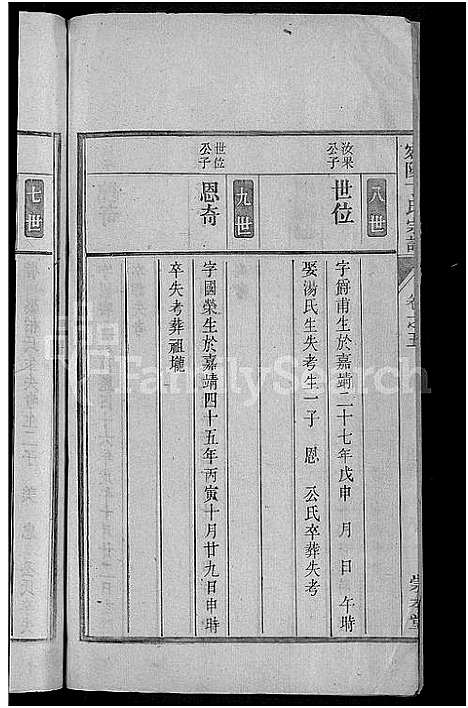 八世
汝果公子
世位
字爵甫生於嘉靖二十七年戊申 月 日 午時
娶湯氏生失考生一子 恩 公氏卒葬失考
九世
世位公子
恩奇
字國榮生於嘉靖四十五年丙寅十月廿九日申時
卒失考葬祖壠
七世
FamilySearch